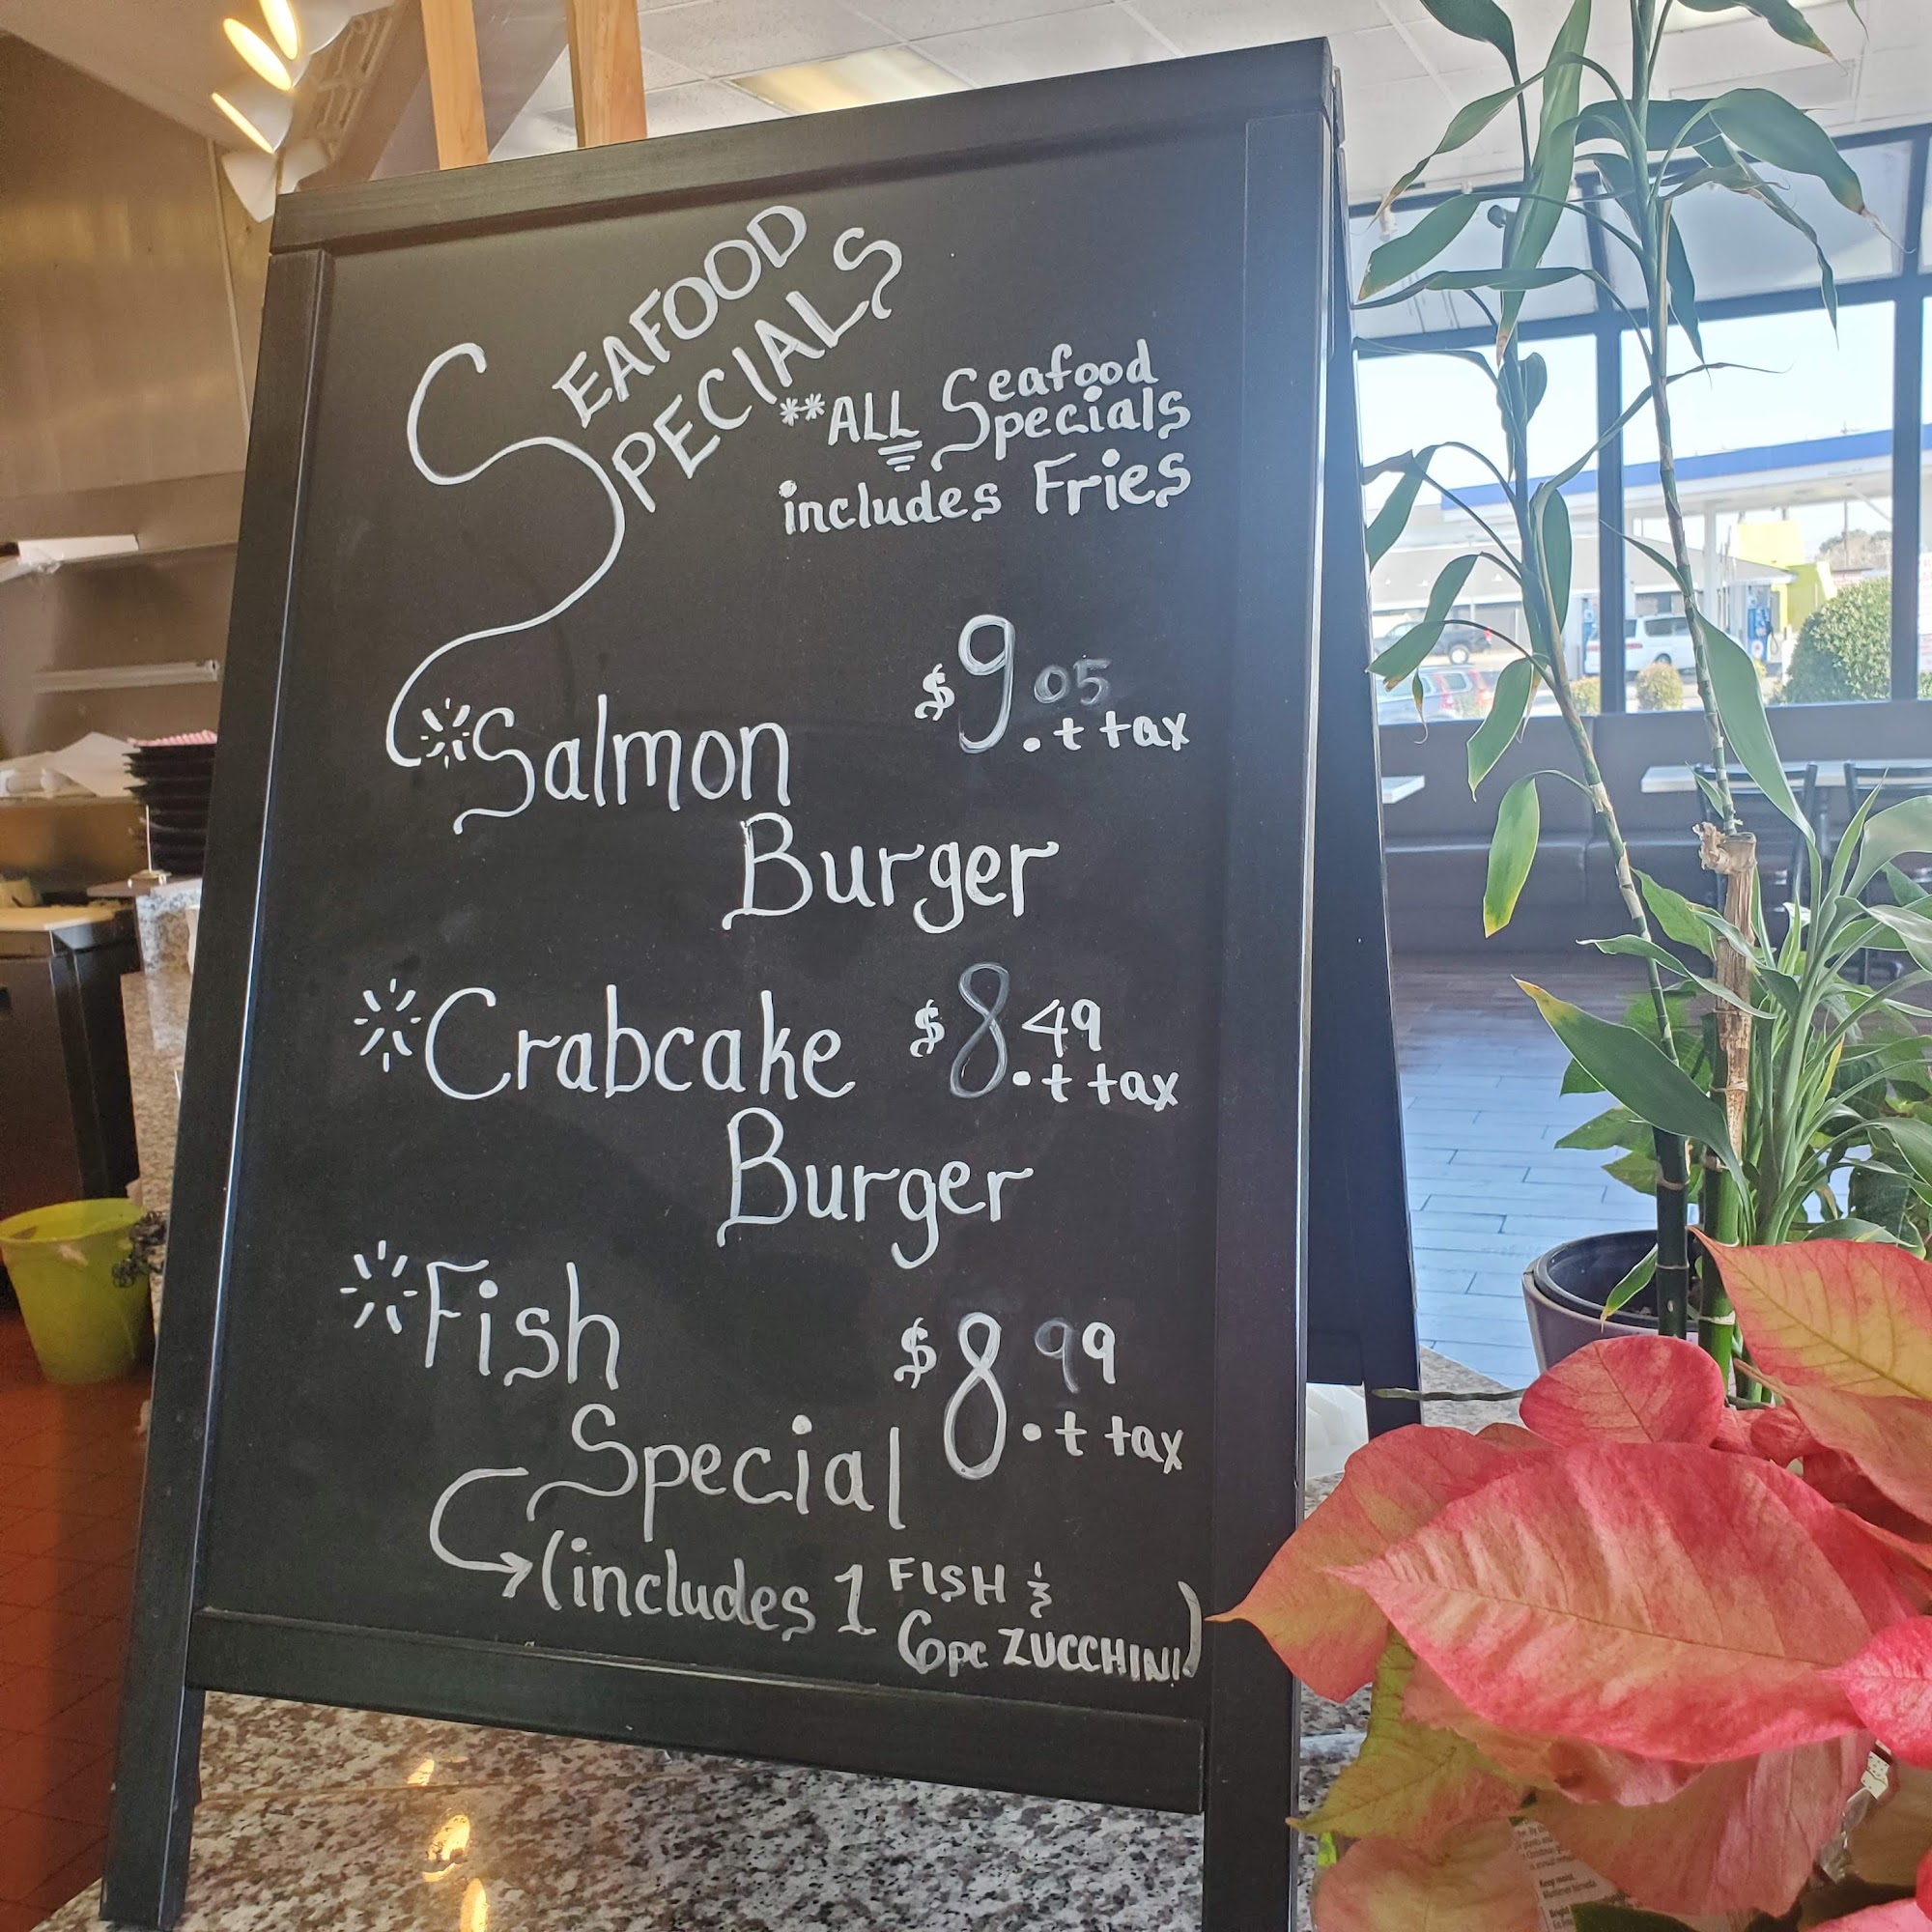 SEAFOOD
SPECIALS
**ALL Seafood
Specials
includes Fries
Salmon $9.05
+ tax
Burger
Crabcake $8.49
+ tax
Burger
Fish $8.99
Special + tax
(includes 1 FISH &
6pc ZUCCHINI)